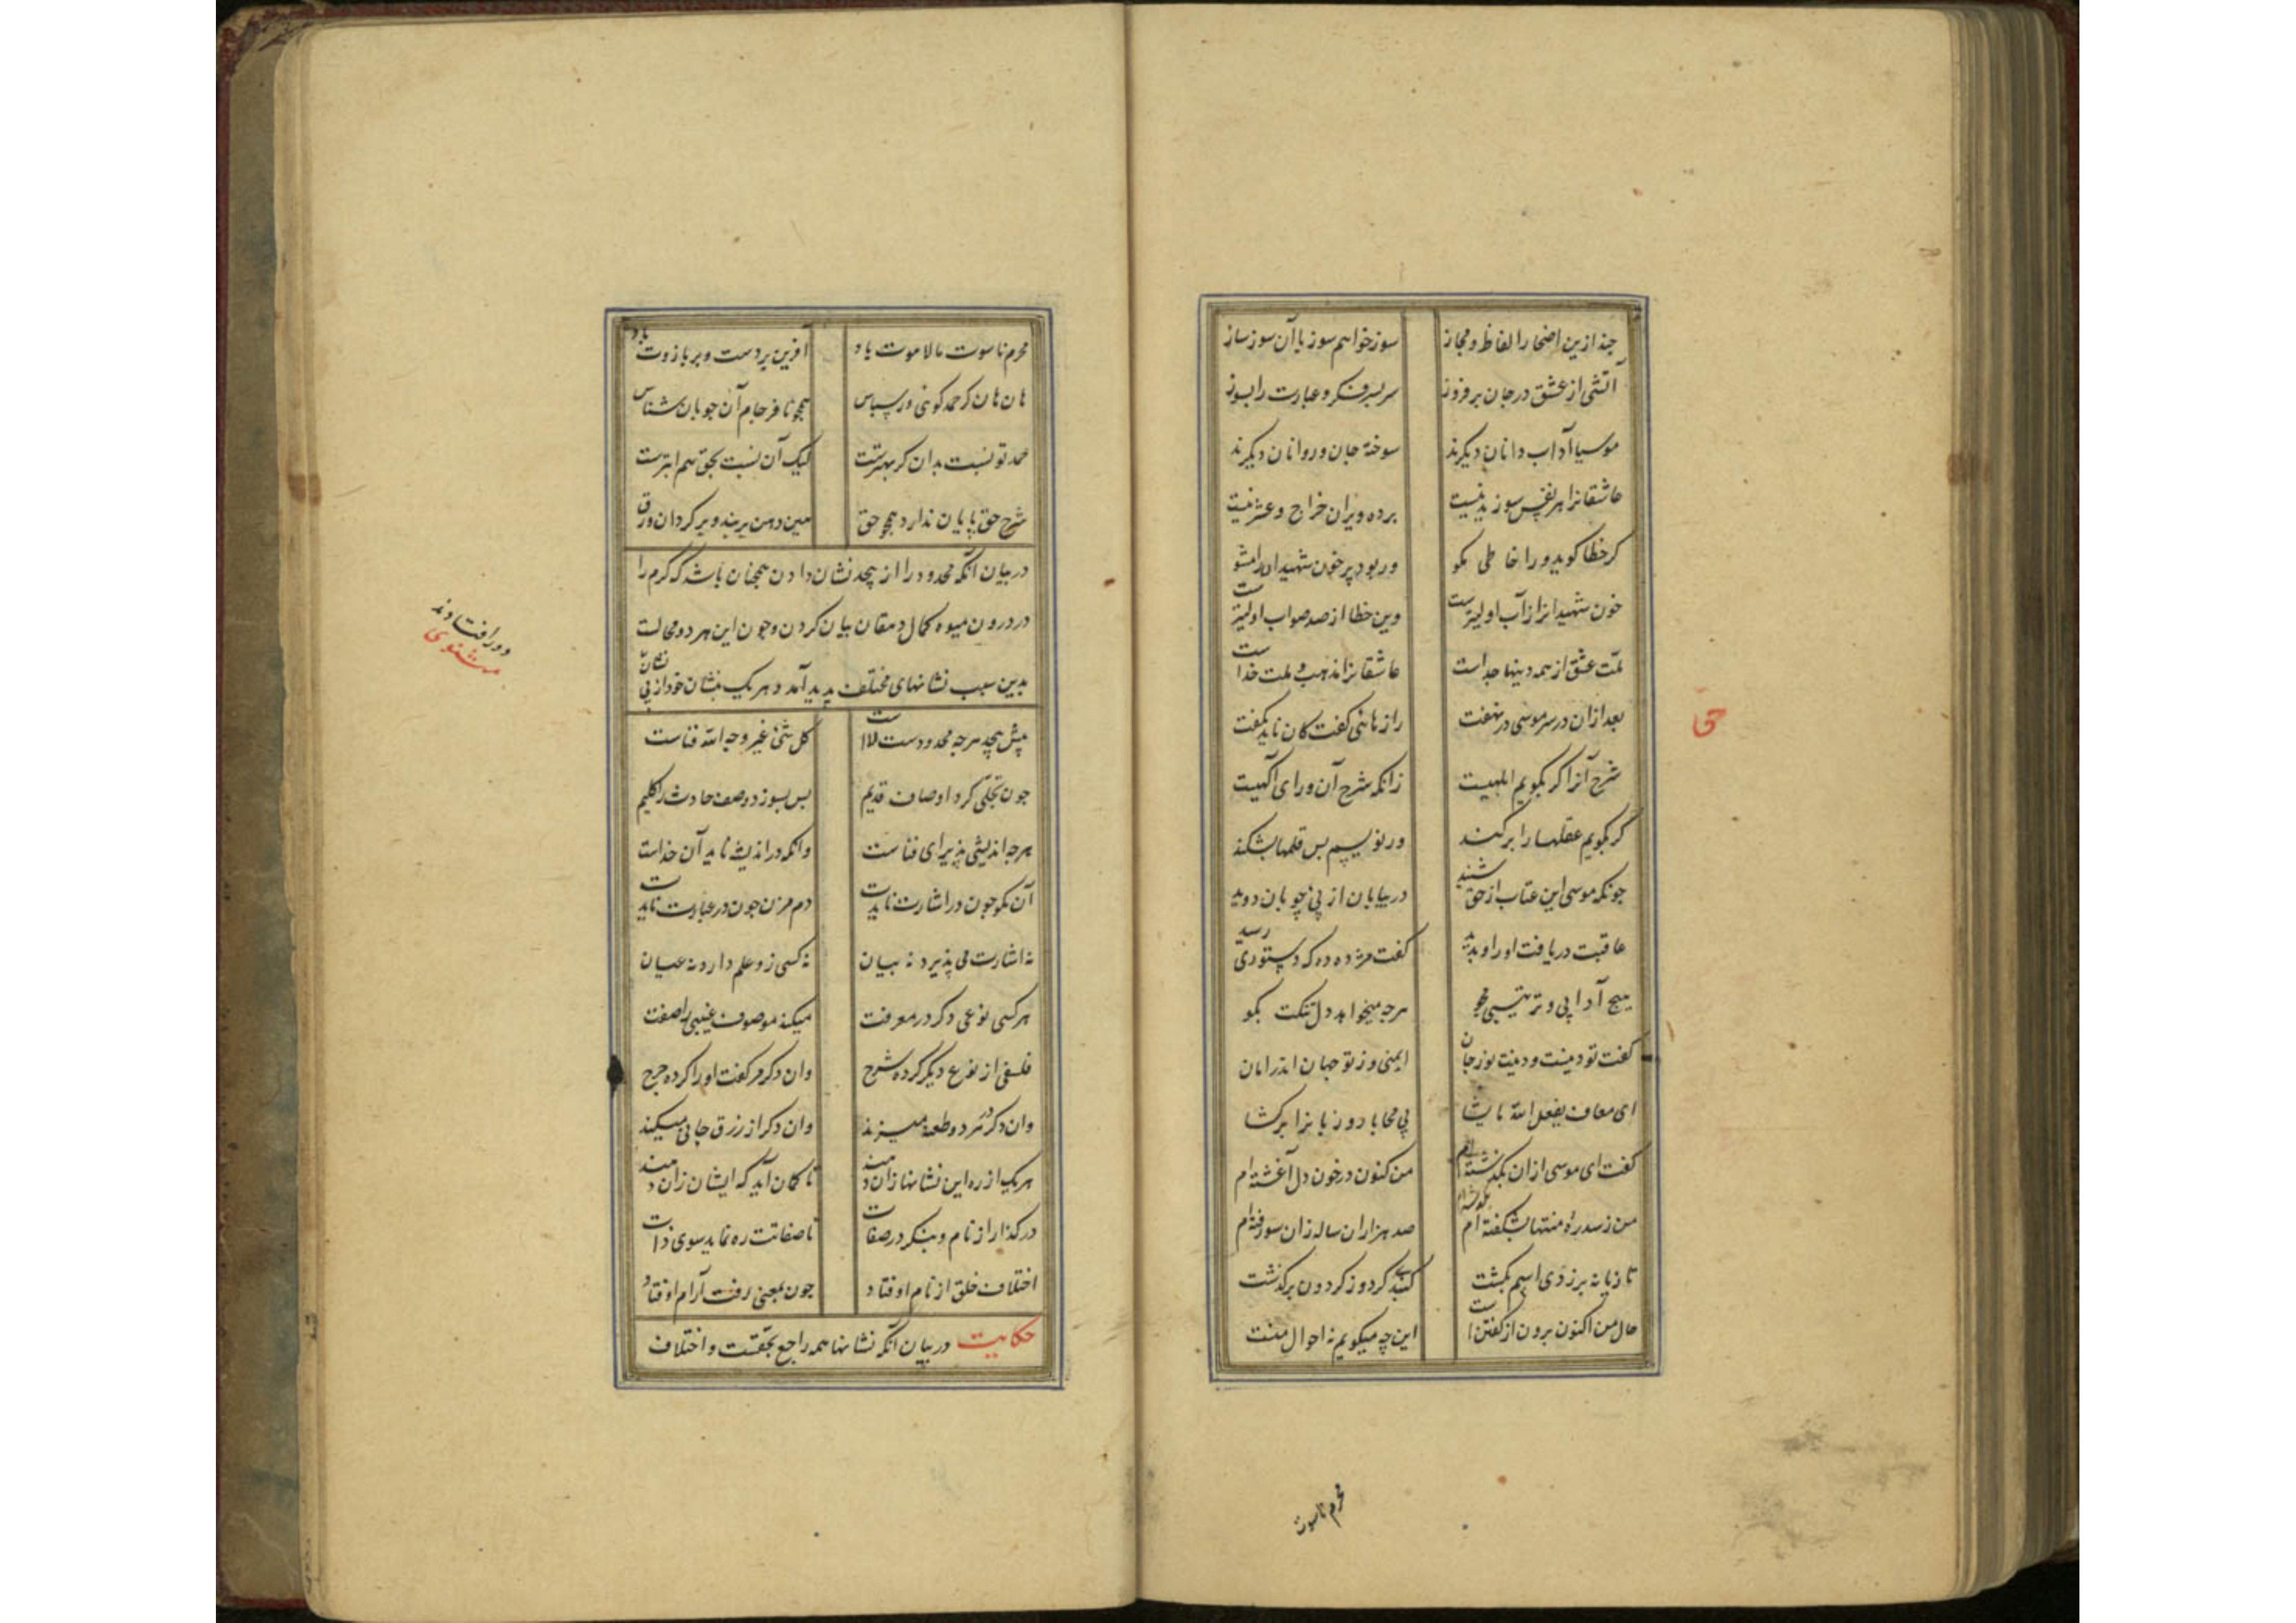 چند ازین اضمار الفاظ و مجاز سوز خواهم سوز با آن سوز ساز
آتشی از عشق در جان برفروز سر بسر فکر و عبارت را بسوز
موسیا آداب دانان دیگرند سوخته جان و روانان دیگرند
عاشقانرا هر نفس سوزیدنیست بر ده ویران خراج و عشر نیست
گر خطا گوید ورا خاطی مگو ور بود پر خون شهید او را مشو
خون شهیدانرا ز آب اولیترست وین خطا از صد صواب اولیترست
ملت عشق از همه دینها جداست عاشقانرا مذهب و ملت خداست
بعد ازان در سر موسی در نهفت رازهائی گفت کان ناید بگفت
شرح آنرا گر بگویم ابلهیست زانکه شرح آن ورای آگهیست
گر بگویم عقلها را برکند ور نویسم بس قلمها بشکند
چونکه موسی این عتاب از حق شنید در بیابان از پی چوپان دوید
عاقبت دریافت او را و بدید گفت مژده ده که دستوری رسید
هیچ آدابی و ترتیبی مجو هرچه میخواهد دل تنگت بگو
گفت تو دینست و دینت نور جان ایمنی وز تو جهان اندر امان
ای معاف یفعل الله ما یشا بی محابا رو زبانرا برگشا
گفت ای موسی ازان بگذشته ام من کنون در خون دل آغشته ام
من ز سدره منتها بشکفته ام بگذشته ام صد هزاران ساله زان سو رفته ام
تازیانه بر زدی اسپم بگشت گنبدی کرد و ز گردون برگذشت
حال من اکنون برون از گفتنست این چه میگویم نه احوال منست
حق
محرم ناسوت
محرم ناسوت ما لاهوت باد آفرین بر دست و بر بازوت باد
هان هان گر حمد گوئی ور سپاس همچو نافرجام آن چوپان شناس
حمد تو نسبت بدان گر بهترست لیک آن نسبت بحق هم ابترست
شرح حق پایان ندارد همچو حق هین دهن بربند و برگردان ورق
در بیان آنکه محدود را از بیحد نشان دادن همچنان باشد که کرم را
در درون میوه کمال دهقان بیان کردن و چون این هر دو محالست
بدین سبب نشانهای مختلف پدید آمد و هر یک بنشان خود از بی نشان
دور افتادند
مثنوی
پیش بیحد هرچه محدودست لاست کل شئ غیر وجه الله فناست
چون تجلی کرد اوصاف قدیم پس بسوزد وصف حادث را کلیم
هرچه اندیشی پذیرای فناست وانکه در اندیشه ناید آن خداست
آن مگو چون در اشارت نایدت دم مزن چون در عبارت نایدت
نه اشارت می پذیرد نه بیان نه کسی زو علم دارد نه عیان
هر کسی نوعی دگر در معرفت میکند موصوف غیبی را صفت
فلسفی از نوع دیگر کرده شرح وان دگر مر گفت او را کرده جرح
وان دگر در هر دو طعنه میزند وان دگر از زرق جانی میکند
هر یک از ره این نشانها زان دهند تا گمان آید که ایشان زان دهند
درگذار از نام و بنگر در صفات تا صفاتت ره نماید سوی ذات
اختلاف خلق از نام اوفتاد چون بمعنی رفت آرام اوفتاد
حکایت در بیان آنکه نشانها همه راجع بحقست و اختلاف